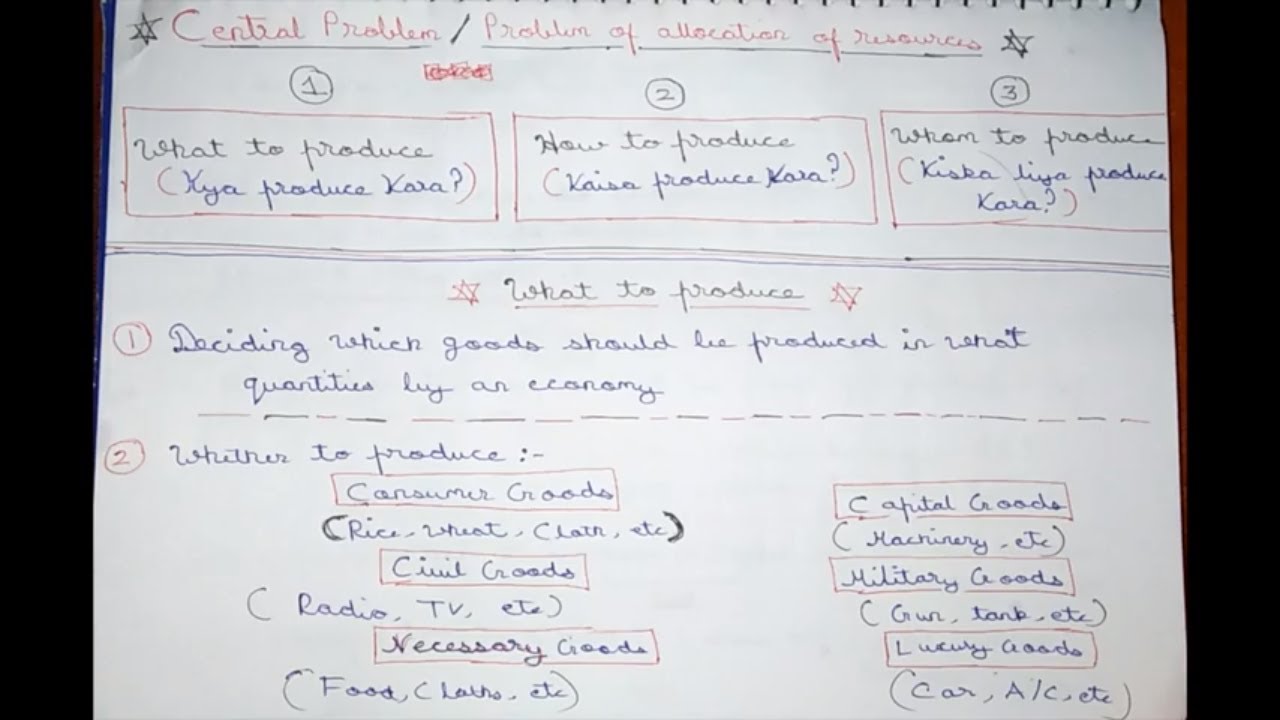 Central Problem / Problem of allocation of resources
1 2 3
What to produce
(Kya produce Kara?)
How to produce
(Kaisa produce Kara?)
Whom to produce
(Kiska liya produce
Kara?)
What to produce
1 Deciding which goods should be produced in what
quantities by an economy
2 Whether to produce :-
Consumer Goods
Capital Goods
(Rice, wheat, Cloth, etc)
(Machinery, etc)
Civil Goods
Military Goods
(Radio, TV, etc)
(Gun, tank, etc)
Necessary Goods
Luxury Goods
(Food, Cloths, etc)
(Car, A/C, etc)